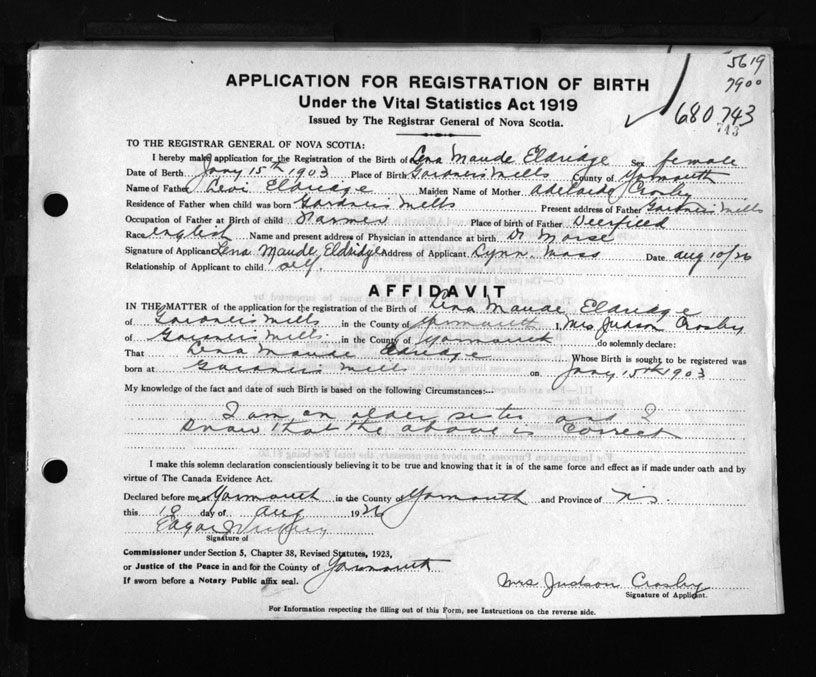 5619
7900
680743
743
APPLICATION FOR REGISTRATION OF BIRTH
Under the Vital Statistics Act 1919
Issued by The Registrar General of Nova Scotia.
TO THE REGISTRAR GENERAL OF NOVA SCOTIA:
I hereby make application for the Registration of the Birth of Lena Maude Eldridge Sex female
Date of Birth Jany 15th 1903 Place of Birth Gardners Mills County of Yarmouth
Name of Father Levi Eldridge Maiden Name of Mother Adelaide Crosby
Residence of Father when child was born Gardners Mills Present address of Father Gardners Mills
Occupation of Father at Birth of child Farmer Place of birth of Father Deerfield
Race English Name and present address of Physician in attendance at birth Dr Morse
Signature of Applicant Lena Maude Eldridge Address of Applicant Lynn, Mass Date Aug 10/26
Relationship of Applicant to child self.
AFFIDAVIT
IN THE MATTER of the application for the registration of the Birth of Lena Maude Eldridge
of Gardners Mills in the County of Yarmouth I, Mrs Judson Crosby
of Gardners Mills in the County of Yarmouth do solemnly declare:
That Lena Maude Eldridge Whose Birth is sought to be registered was
born at Gardners Mills on Jany 15th 1903
My knowledge of the fact and date of such Birth is based on the following Circumstances:--
I am an older sister and I
know that the above is correct
I make this solemn declaration conscientiously believing it to be true and knowing that it is of the same force and effect as if made under oath and by
virtue of The Canada Evidence Act.
Declared before me at Yarmouth in the County of Yarmouth and Province of N.S.
this 18 day of Aug 1926
Edgar
Signature of
Commissioner under Section 5, Chapter 38, Revised Statutes, 1923,
or Justice of the Peace in and for the County of Yarmouth
If sworn before a Notary Public affix seal.
Mrs Judson Crosby
Signature of Applicant.
For Information respecting the filling out of this Form, see Instructions on the reverse side.